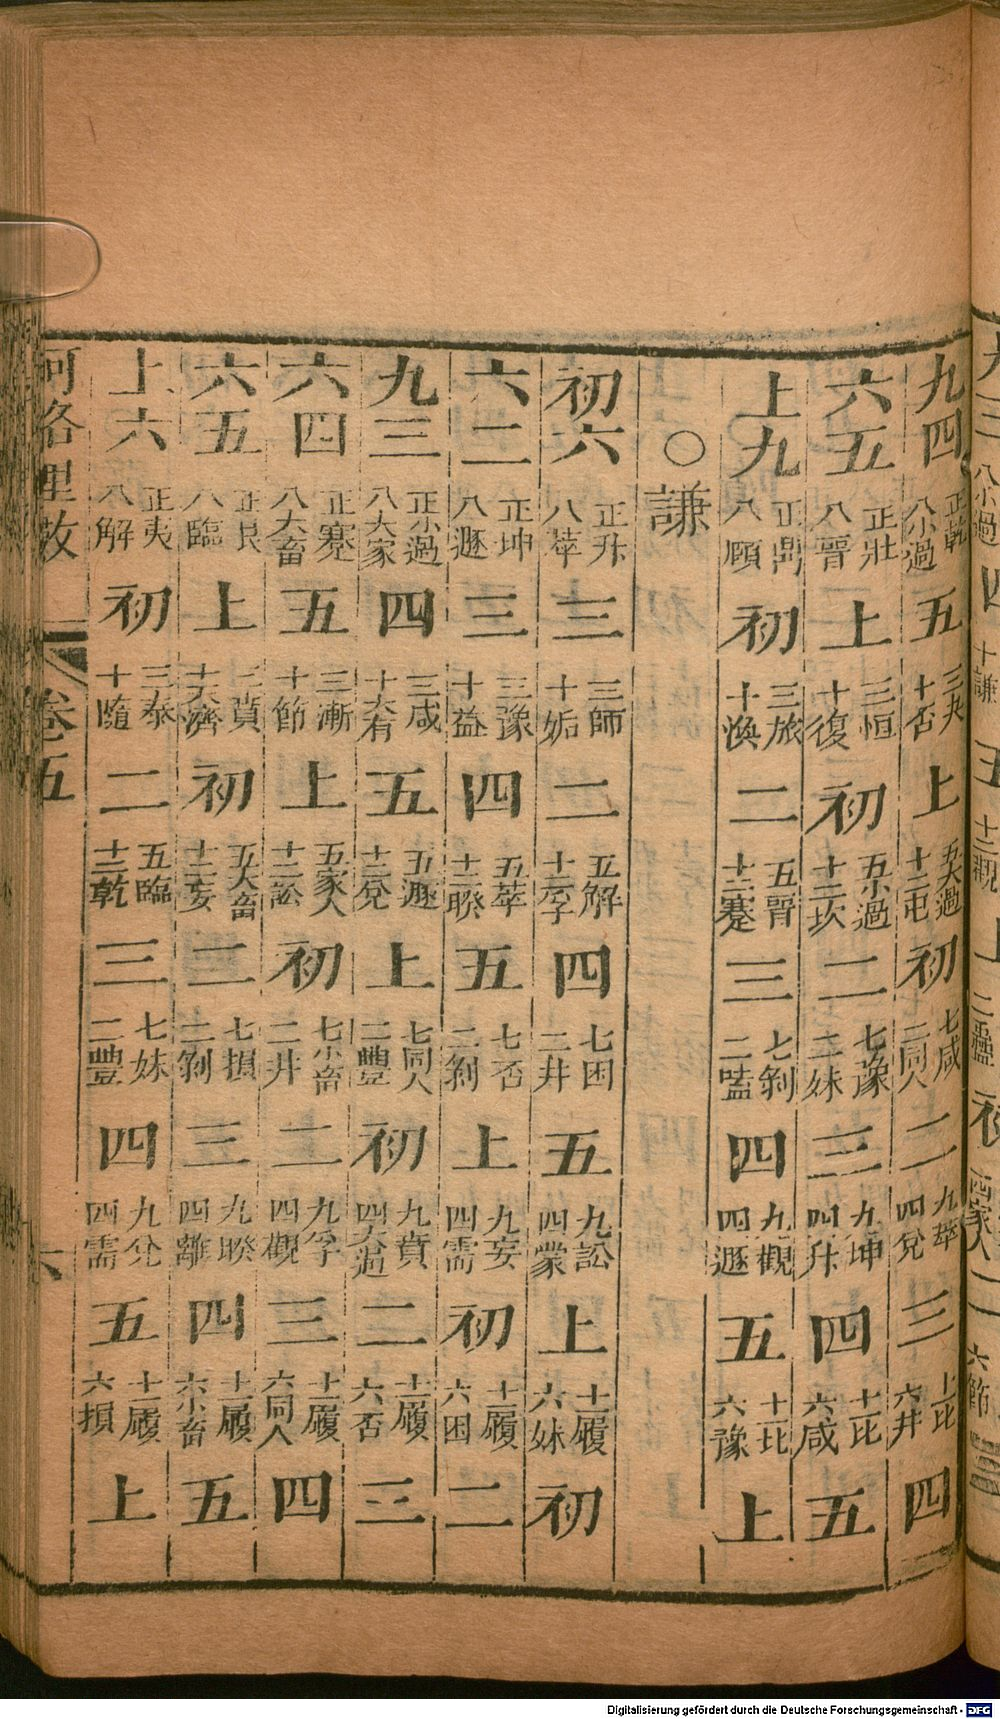 八小過 四 十謙 五 十二觀 上 二蠱 初 四家人 二 六節 三
九四 正乾 八小過 五 三夬 十否 上 五大過 十二屯 初 七咸 二同人 二 九萃 四兌 三 十一比 六井 四
六五 正壯 八晉 上 三恒 十復 初 五小過 十二坎 二 七豫 二妹 三 九坤 四升 四 十一比 六咸 五
上九 正鼎 八頤 初 三旅 十渙 二 五晉 十二蹇 三 七剝 二嗑 四 九觀 四遯 五 十一比 六豫 上
○謙
初六 正升 八萃 三 三師 十姤 二 五解 十二孚 四 七困 二井 五 九訟 四蒙 上 十一履 六妹 初
六二 正坤 八遯 三 三豫 十益 四 五萃 十二睽 五 七否 二剝 上 九妄 四需 初 十一履 六困 二
九三 正小過 八大家 四 三咸 十大有 五 五遯 十二兌 上 七同人 二豐 初 九賁 四大過 二 十一履 六否 三
六四 正蹇 八大畜 五 三漸 十節 上 五家人 十二訟 初 七小畜 二井 二 九孚 四觀 三 十一履 六同人 四
六五 正艮 八臨 上 三賁 十大濟 初 五大畜 十二妄 二 七損 二剝 三 九睽 四離 四 十一履 六小畜 五
上六 正夷 八解 初 三泰 十隨 二 五臨 十二乾 三 七妹 二豐 四 九兌 四需 五 十一履 六損 上
河洛理數 卷五 六
Digitalisierung gefördert durch die Deutsche Forschungsgemeinschaft - DFG